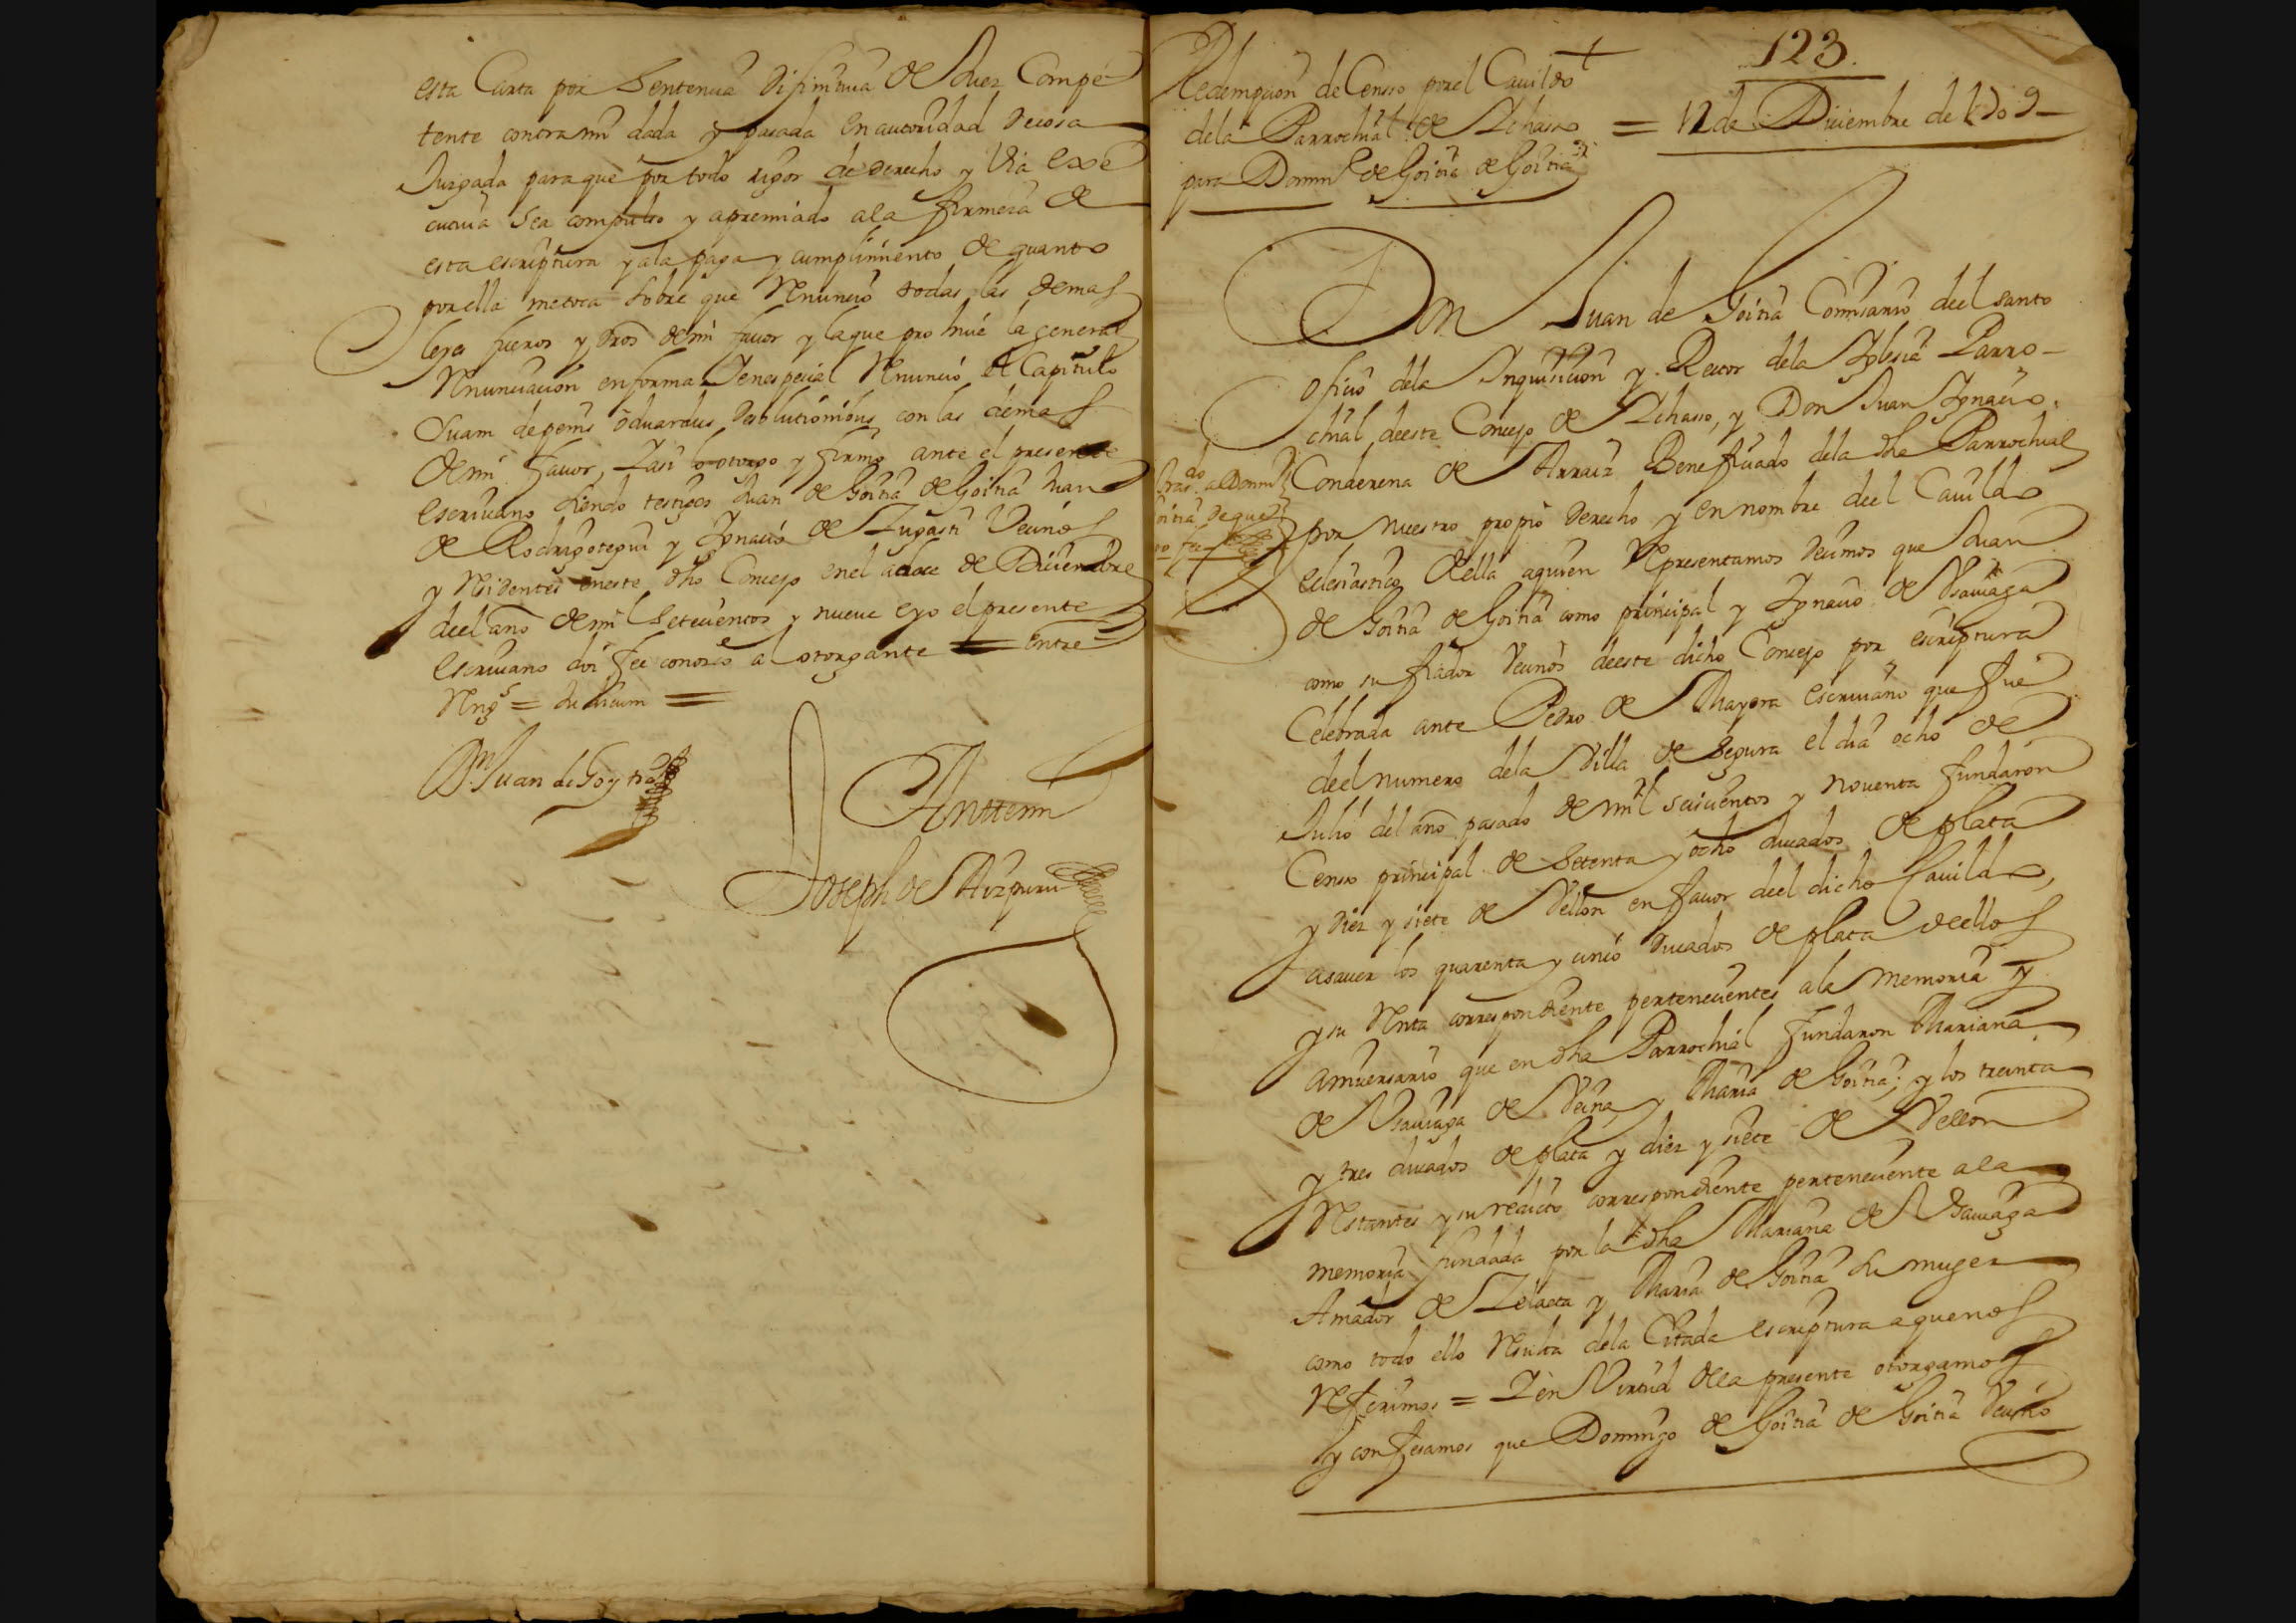 esta Carta por Sentencia difinitiva de Juez Compe
tente contra mi dada y pasada en autoridad de cosa
Juzgada para que por todo rigor de derecho y Via exe
cutiva sea compulso y apremiado a la firmeza de
esta escriptura y a la paga y cumplimiento de quanto
por ella me toca sobre que Renuncio todas las demas
leyes fueros y dros de mi favor y la que prohive la general
Renunciacion en forma Y en especial Renuncio el Capitulo
Suam de penis Oduardus de solutionibus con las demas
de mi favor, Y asi lo otorgo y firmo ante el presente
escrivano siendo testigos Juan de Goitia de Goitia Juan
de Rodrigotegui y Ignacio de Zugasti Vecinos
y Residentes en este dho Concejo en el a doce de Diciembre
deel año de mil Setecientos y nueve e yo el presente
escrivano doi fee conozco al otorgante = Entre
Rngs =
Dn Juan de Goytia
Anttemi
Joseph de Aizpuru
123.
Redempcion de Censo por el Cavildo
de la Parrochial de Ichasso = 12 de Diciembre de 1709
para Domingo de Goitia de Goitia
Don Juan de Goitia Comisario deel santo
oficio de la Inquisicion y Rector de la Iglesia Parro-
chial de este Concejo de Ichasso, y Don Juan Ignacio
Conderena de Arraiz Beneficiado de la dha Parrochial
por nuestro propio derecho y en nombre deel Cavildo
eclesiastico de ella a quien Representamos decimos que Juan
de Goitia de Goitia como principal y Ignacio de Vsauiaga
como su fiador Vecinos de este dicho Concejo por escriptura
Celebrada ante Pedro de Mayora escrivano que fue
deel numero de la Villa de Segura el dia ocho de
Julio del año pasado de mil seiscientos y noventa fundaron
Censo principal de Setenta y ocho ducados de plata
y diez y siete de Vellon en favor deel dicho Cavildo,
a saver los quarenta y cinco ducados de plata de ellos
y su Renta correspondiente pertenecientes a la memoria y
aniversario que en dha Parrochial fundaron Mariana
de Vsauiaga de Vicina y Maria de Goitia; y los treinta
y tres ducados de plata y diez y siete de Vellon
Restantes y su redito correspondiente perteneciente a la
memoria fundada por la dha Mariana de Vsauiaga
Amador de Zelaeta y Maria de Goitia su muger
como todo ello Resulta de la Citada escriptura a que nos
Referimos = Y en Virtud de la presente otorgamos
y confesamos que Domingo de Goitia de Goitia Vecino